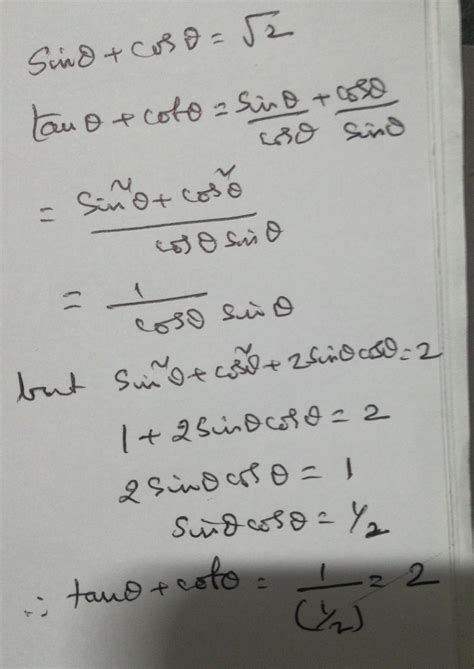 sinθ + cosθ = √2
tanθ + cotθ = sinθ/cosθ + cosθ/sinθ
= (sin²θ + cos²θ)/(cosθ sinθ)
= 1/(cosθ sinθ)
but sin²θ + cos²θ + 2sinθcosθ = 2
1 + 2sinθcosθ = 2
2sinθcosθ = 1
sinθcosθ = 1/2
∴ tanθ + cotθ = 1/(1/2) = 2